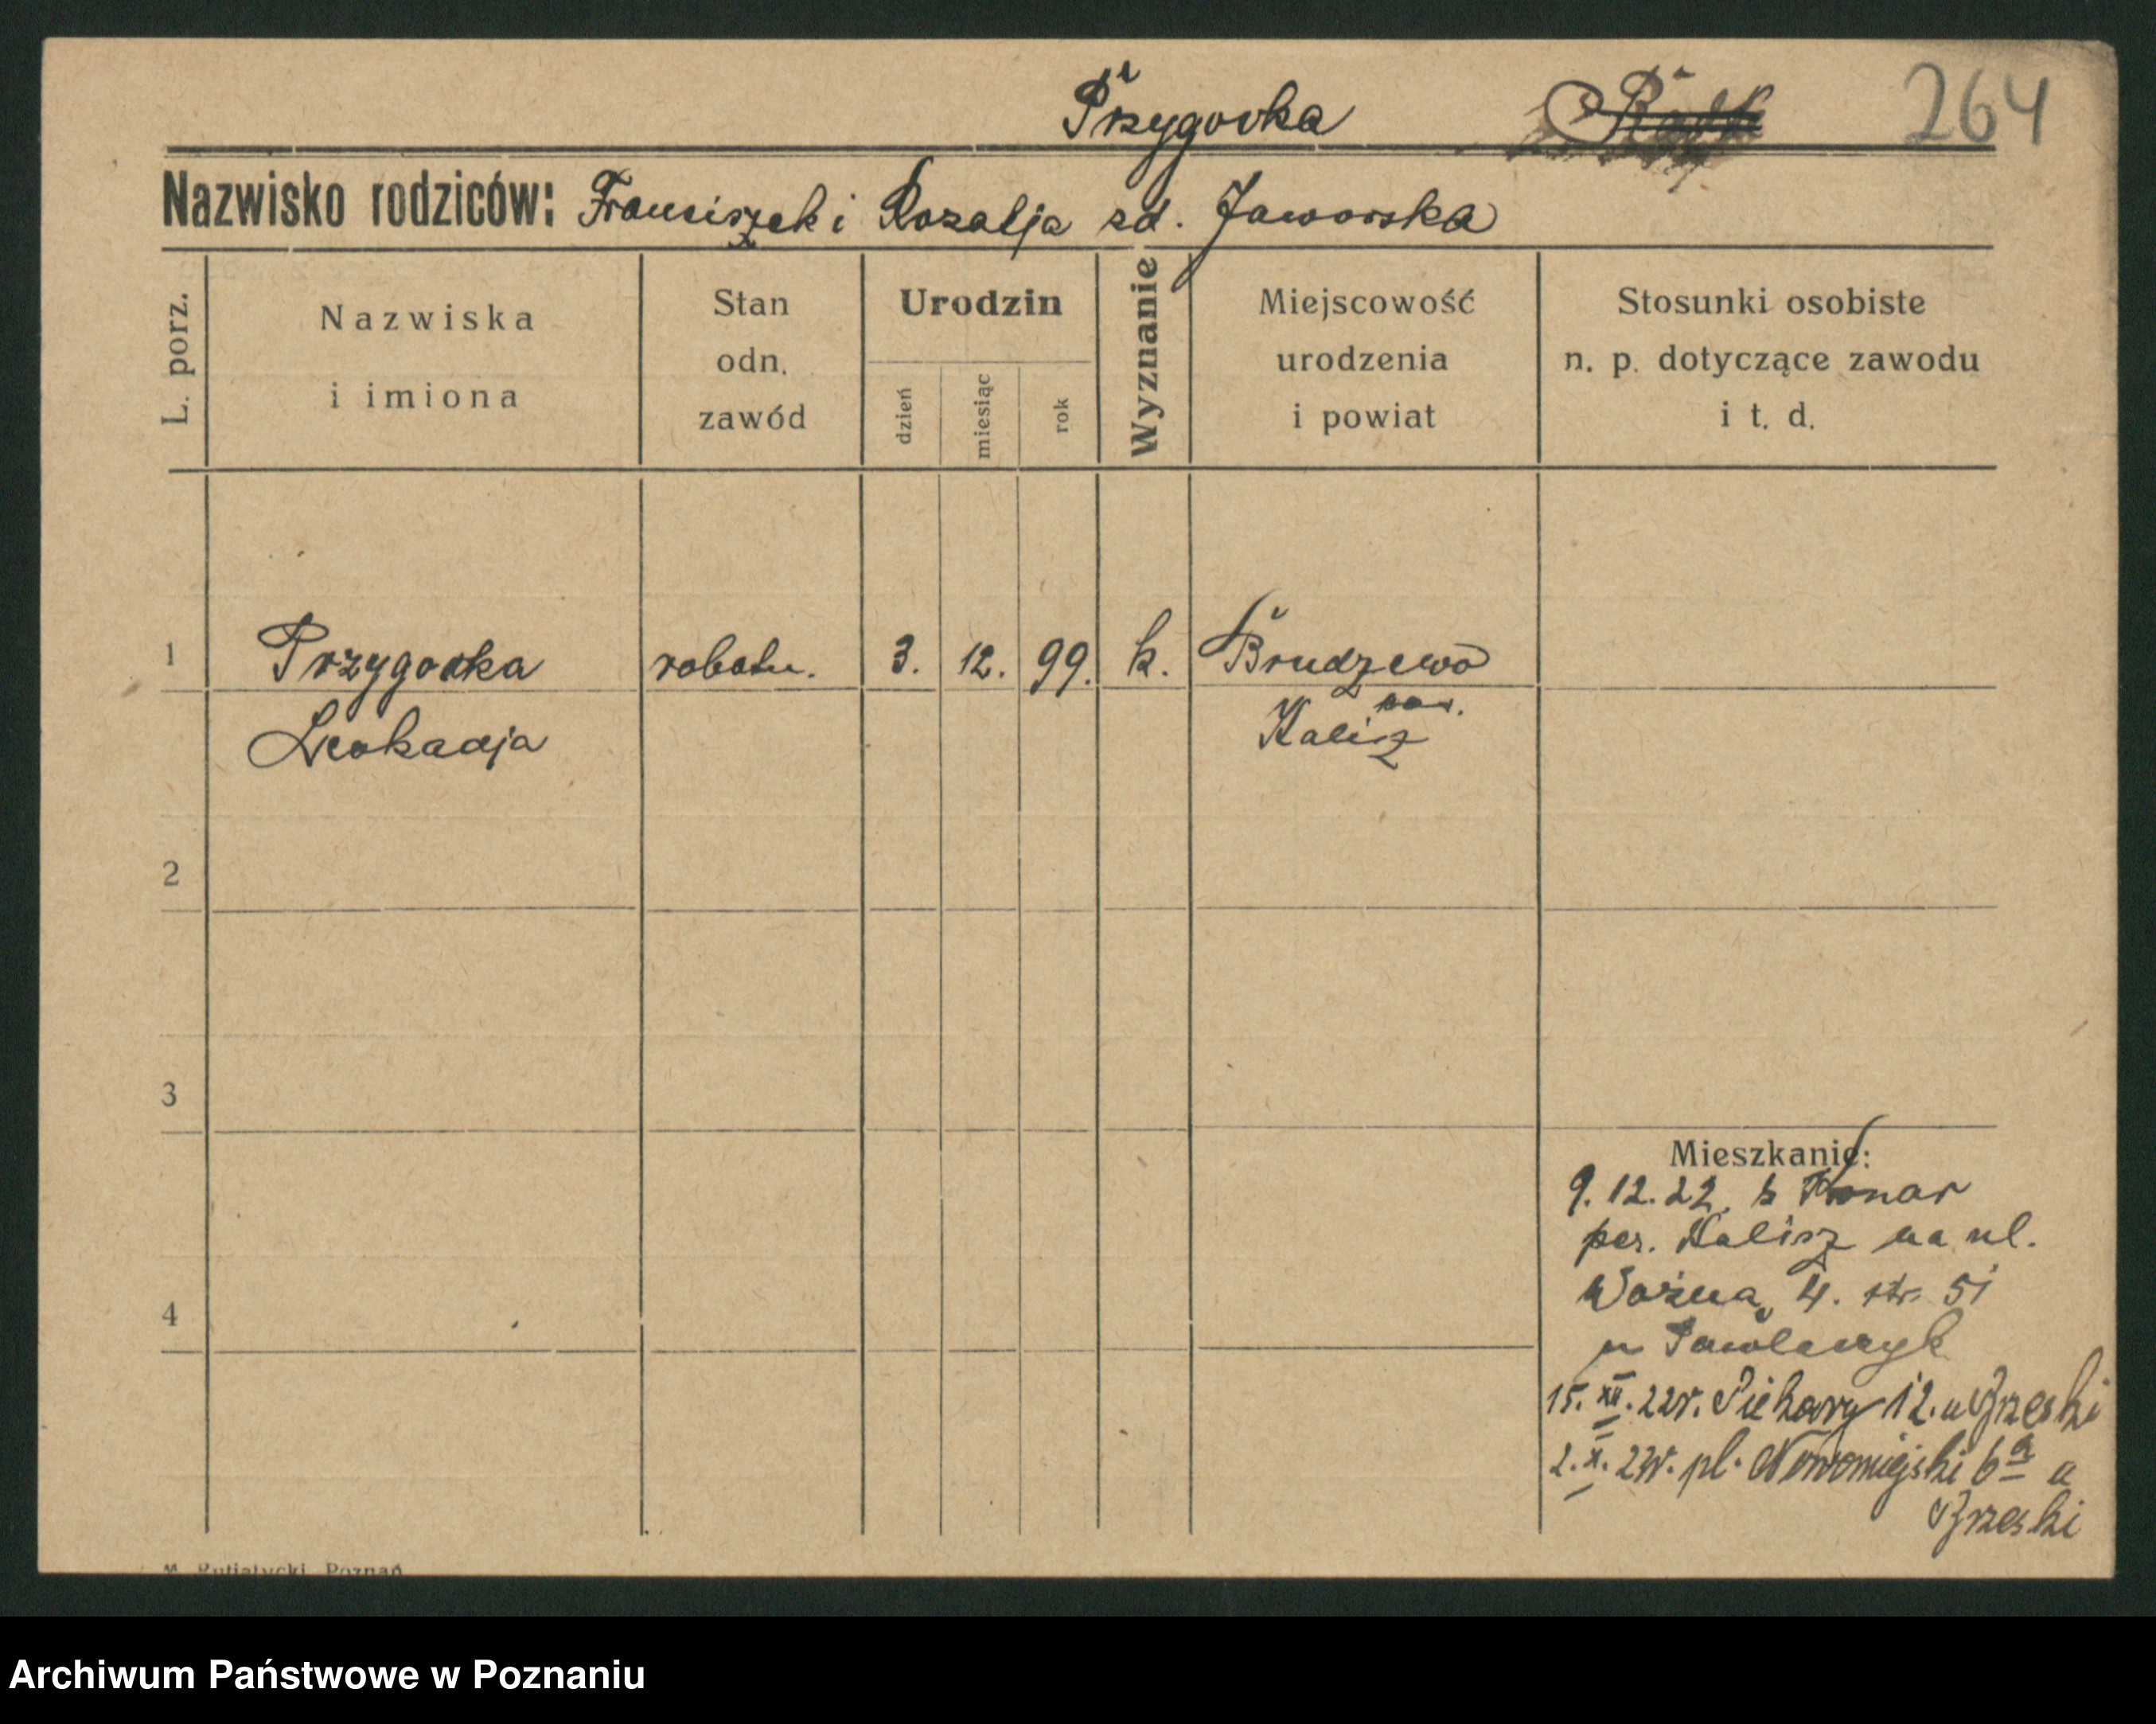 Przygocka 264
Nazwisko rodziców: Franciszek i Rozalja zd. Jaworska
L. porz.
Nazwiska
i imiona
Stan
odn.
zawód
Urodzin
dzień
miesiąc
rok
Wyznanie
Miejscowość
urodzenia
i powiat
Stosunki osobiste
n. p. dotyczące zawodu
i t. d.
1 Przygocka robotn. 3. 12. 99. k. Brudzewo
Leokadja Kalisz
2
3
4
Mieszkanie:
9. 12. 22. z
Kalisz na ul.
Woźna 4. str. 5
u Pawlaczyk
15. XII. 22r. Piekary 12. u Brzeski
2. X. 23r. pl. Nowomiejski 6a u
Brzeski
M. Putiatycki, Poznań
Archiwum Państwowe w Poznaniu